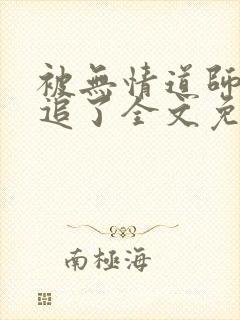 被無情道師
追了全文免
南極海